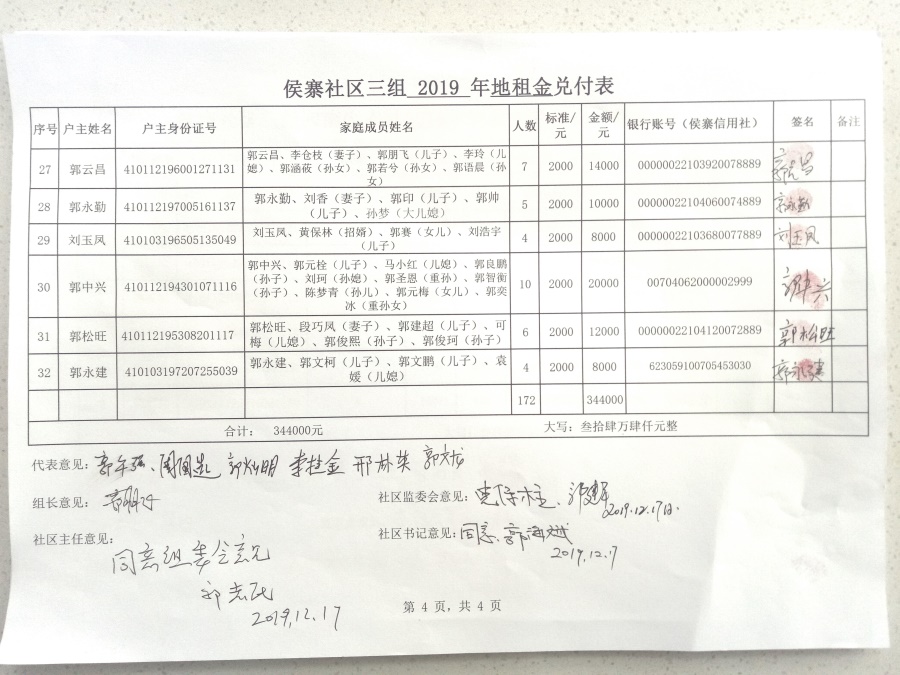 侯寨社区三组 2019 年地租金兑付表
序号 户主姓名 户主身份证号 家庭成员姓名 人数 标准/元 金额/元 银行账号（侯寨信用社） 签名 备注
27 郭云昌 410112196001271131 郭云昌、李仓枝（妻子）、郭朋飞（儿子）、李玲（儿媳）、郭涵莜（孙女）、郭若兮（孙女）、郭语晨（孙女） 7 2000 14000 00000022103920078889 郭云昌
28 郭永勤 410112197005161137 郭永勤、刘香（妻子）、郭印（儿子）、郭帅（儿子）、孙梦（大儿媳） 5 2000 10000 00000022104060074889 郭永勤
29 刘玉凤 410103196505135049 刘玉凤、黄保林（招婿）、郭赛（女儿）、刘浩宇（儿子） 4 2000 8000 00000022103680077889 刘玉凤
30 郭中兴 410112194301071116 郭中兴、郭元栓（儿子）、马小红（儿媳）、郭良鹏（孙子）、刘珂（孙媳）、郭圣恩（重孙）、郭智衡（孙子）、陈梦青（孙儿）、郭元梅（女儿）、郭奕冰（重孙女） 10 2000 20000 00704062000002999 郭中兴
31 郭松旺 410112195308201117 郭松旺、段巧凤（妻子）、郭建超（儿子）、可梅（儿媳）、郭俊熙（孙子）、郭俊珂（孙子） 6 2000 12000 00000022104120072889 郭松旺
32 郭永建 410103197207255039 郭永建、郭文柯（儿子）、郭文鹏（儿子）、袁媛（儿媳） 4 2000 8000 623059100705453030 郭永建
172 344000
合计： 344000元 大写：叁拾肆万肆仟元整
代表意见： 李桂金 邢林英 郭文龙
组长意见：
社区监委会意见： 2019.12.17日.
社区主任意见： 同意组委会意见
社区书记意见： 同意.
2019.12.17
2019.12.17
第 4 页，共 4 页